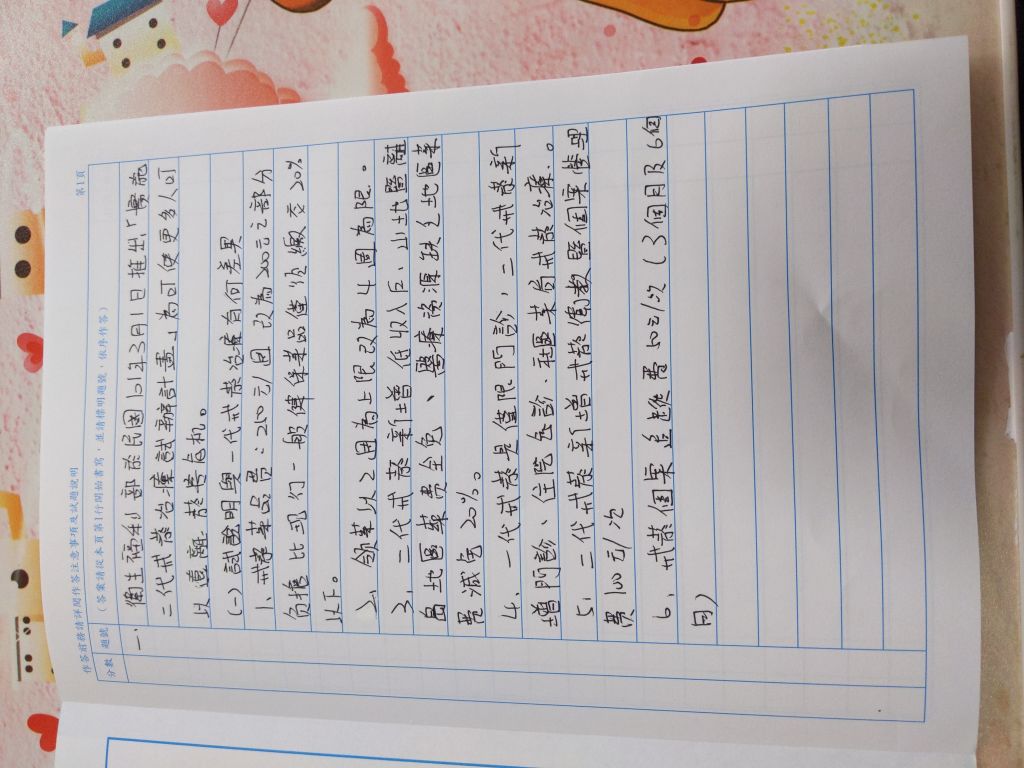 第1頁
作答前務請詳閱作答注意事項及試題說明
(答案請從本頁第1行開始書寫,並請標明題號,依序作答)
分數 題號
一、 衛生福利部於民國101年3月1日推出「
二代戒菸治療試辦計畫」為可使更多人可
以遠離菸害
(一)試證明與一代戒菸治療有何差異
1、戒菸藥品費:250元/週 改為200元之部分
負擔比現行一般健保藥品僅須繳交20%
以下。
2、領藥以2週為上限改為4週為限。
3、二代戒菸新增低收入戶、山地暨離
島地區藥費全免、醫療資源缺乏地區藥
費減免20%。
4、一代戒菸是僅限門診,二代戒菸新
增門診、住院、急診、社區藥局戒菸治療。
5、二代戒菸新增戒菸衛教暨個案管理
費100元/次
6、戒菸個案追蹤費50元/次(3個月及6個
月)